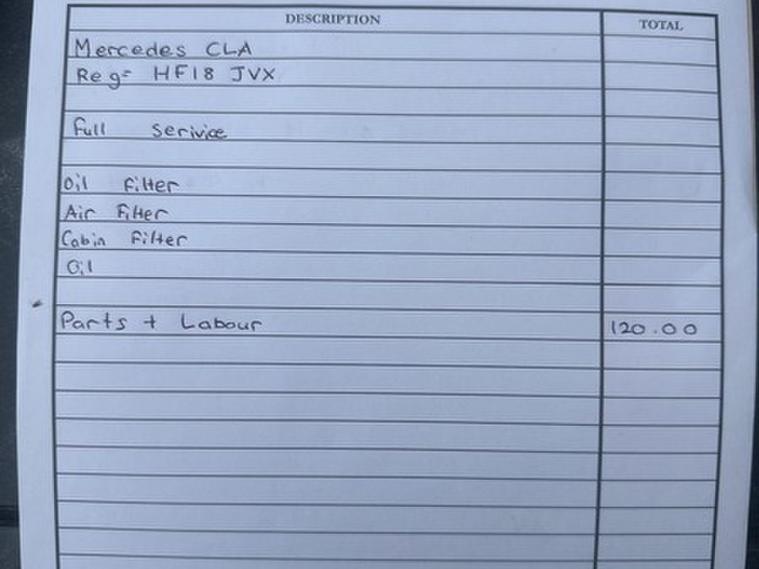 DESCRIPTION TOTAL
Mercedes CLA
Reg= HF18 JVX
Full Serivice
Oil Filter
Air Filter
Cabin Filter
Oil
Parts + Labour 120.00